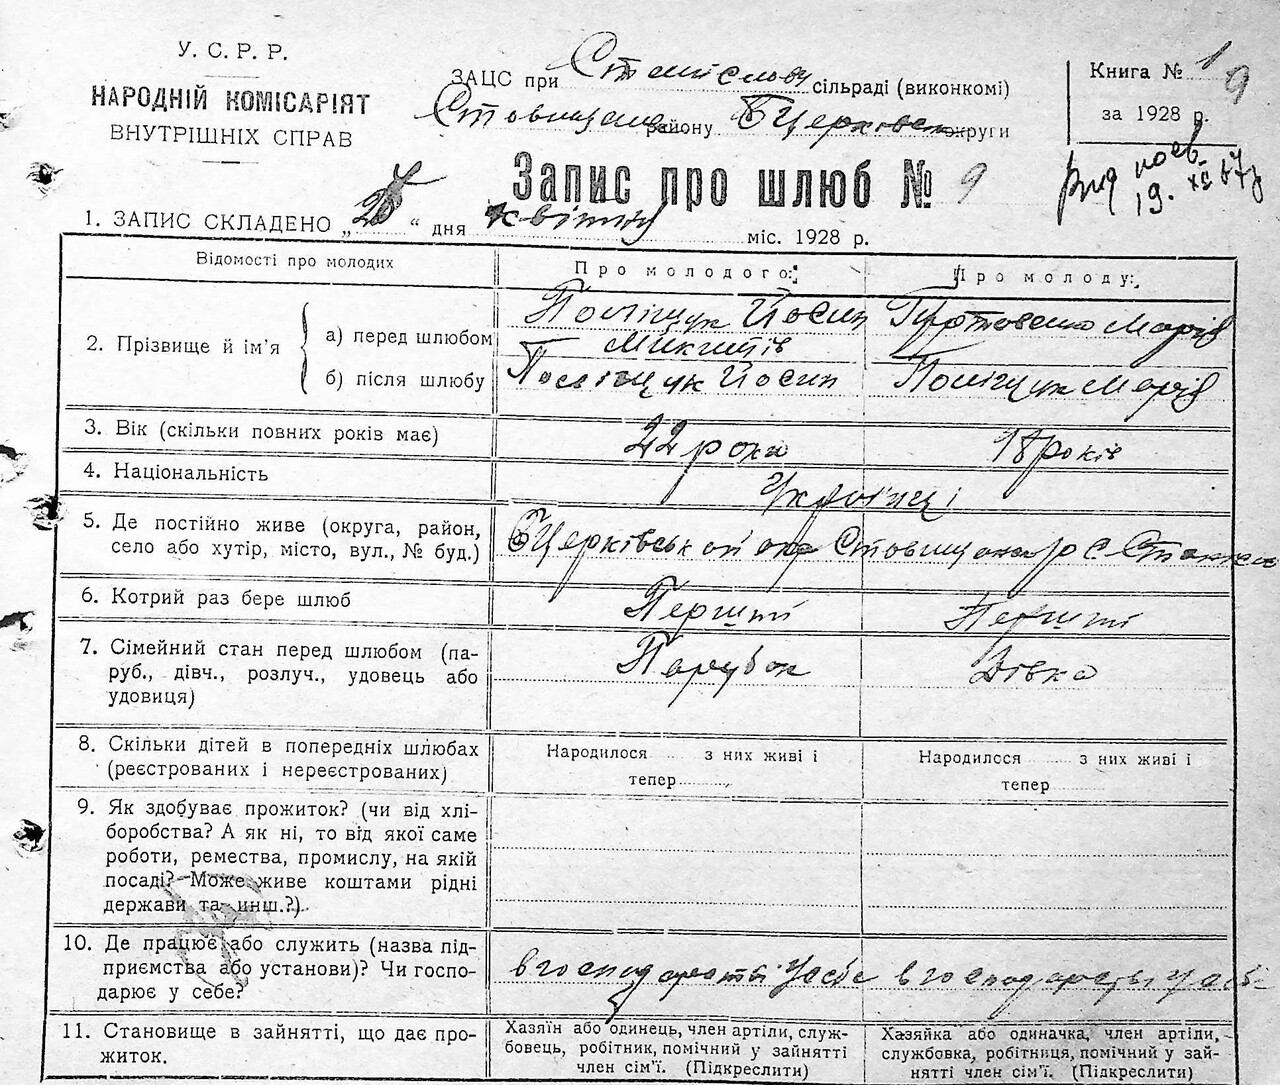 У. С. Р. Р.
НАРОДНІЙ КОМІСАРІЯТ
ВНУТРІШНІХ СПРАВ
ЗАЦС при сільраді (виконкомі)
району БЦерківської округи
Книга № 1
9
за 1928 р.
Запис про шлюб № 9
19. XI 47
1. ЗАПИС СКЛАДЕНО „ “ дня квітня міс. 1928 р.
Відомості про молодих
Про молодого:
Про молоду:
2. Прізвище й ім'я
а) перед шлюбом
Поліщук Йосип
Микитів
Марія
б) після шлюбу
Поліщук Йосип
Поліщук Марія
3. Вік (скільки повних років має)
22 роки
18 років
4. Національність
Українці
5. Де постійно живе (округа, район,
село або хутір, місто, вул., № буд.)
БЦерківськой окр р с
6. Котрий раз бере шлюб
Перший
Перший
7. Сімейний стан перед шлюбом (па-
руб., дівч., розлуч., удовець або
удовиця)
Парубок
Дівка
8. Скільки дітей в попередніх шлюбах
(реєстрованих і нереєстрованих)
Народилося з них живі і
тепер
Народилося з них живі і
тепер
9. Як здобуває прожиток? (чи від хлі-
боробства? А як ні, то від якої саме
роботи, ремества, промислу, на якій
посаді? Може живе коштами рідні
держави та инш.?)
10. Де працює або служить (назва під-
приємства або установи)? Чи госпо-
дарює у себе?
в господарстві у себе
в господарстві у себе
11. Становище в зайнятті, що дає про-
житок.
Хазяїн або одинець, член артіли, служ-
бовець, робітник, помічний у зайнятті
член сім'ї. (Підкреслити)
Хазяйка або одиначка, член артіли,
службовка, робітниця, помічний у зай-
нятті член сім'ї. (Підкреслити)